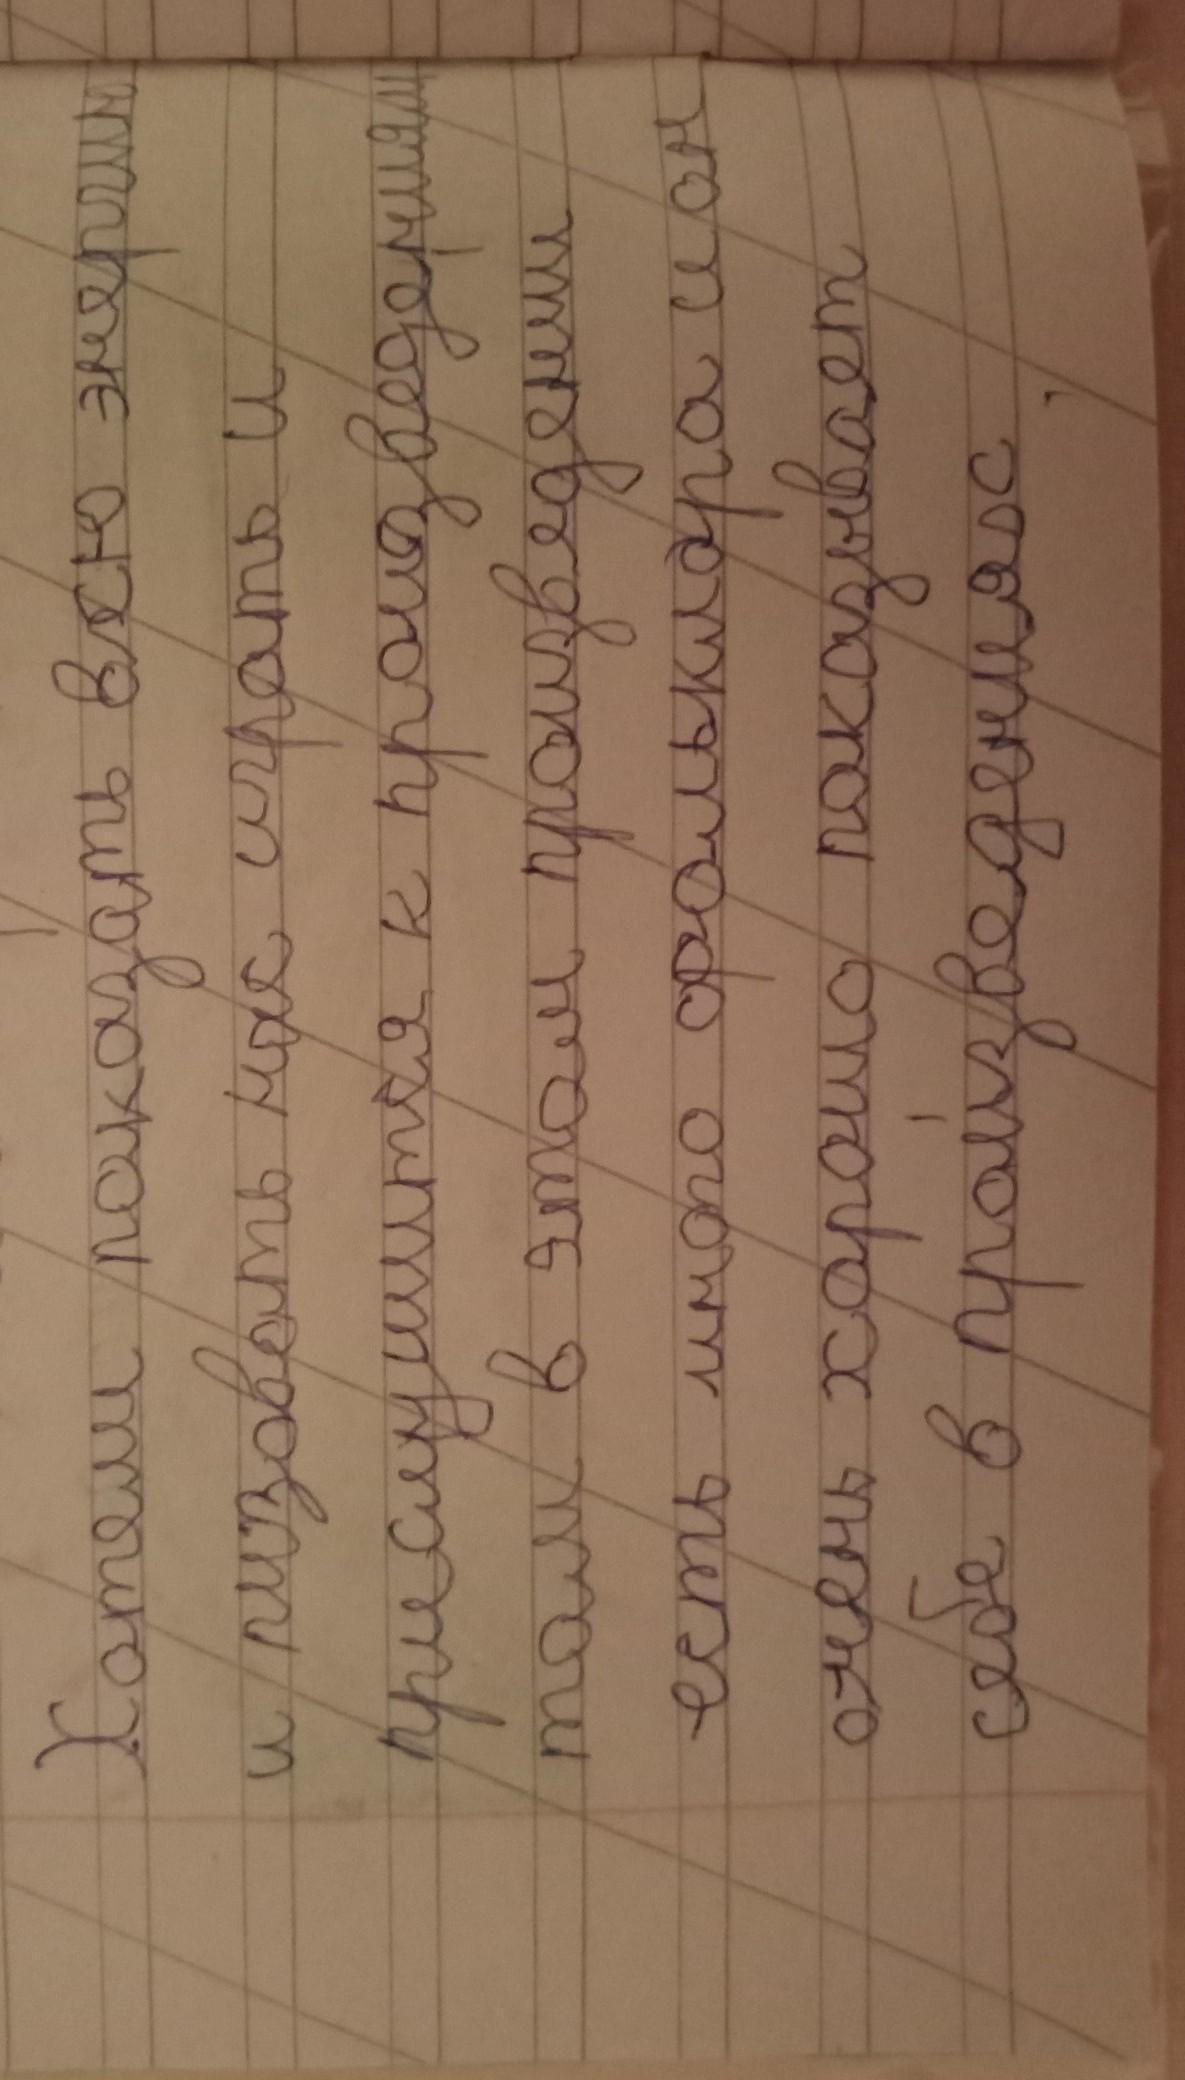 Хотели показать всю энергию
и пизвовать нас играть и
прислушится к произведениям
там в этом произведении
есть много фольклора и он
очень хорошо показывает
себе в произведениях